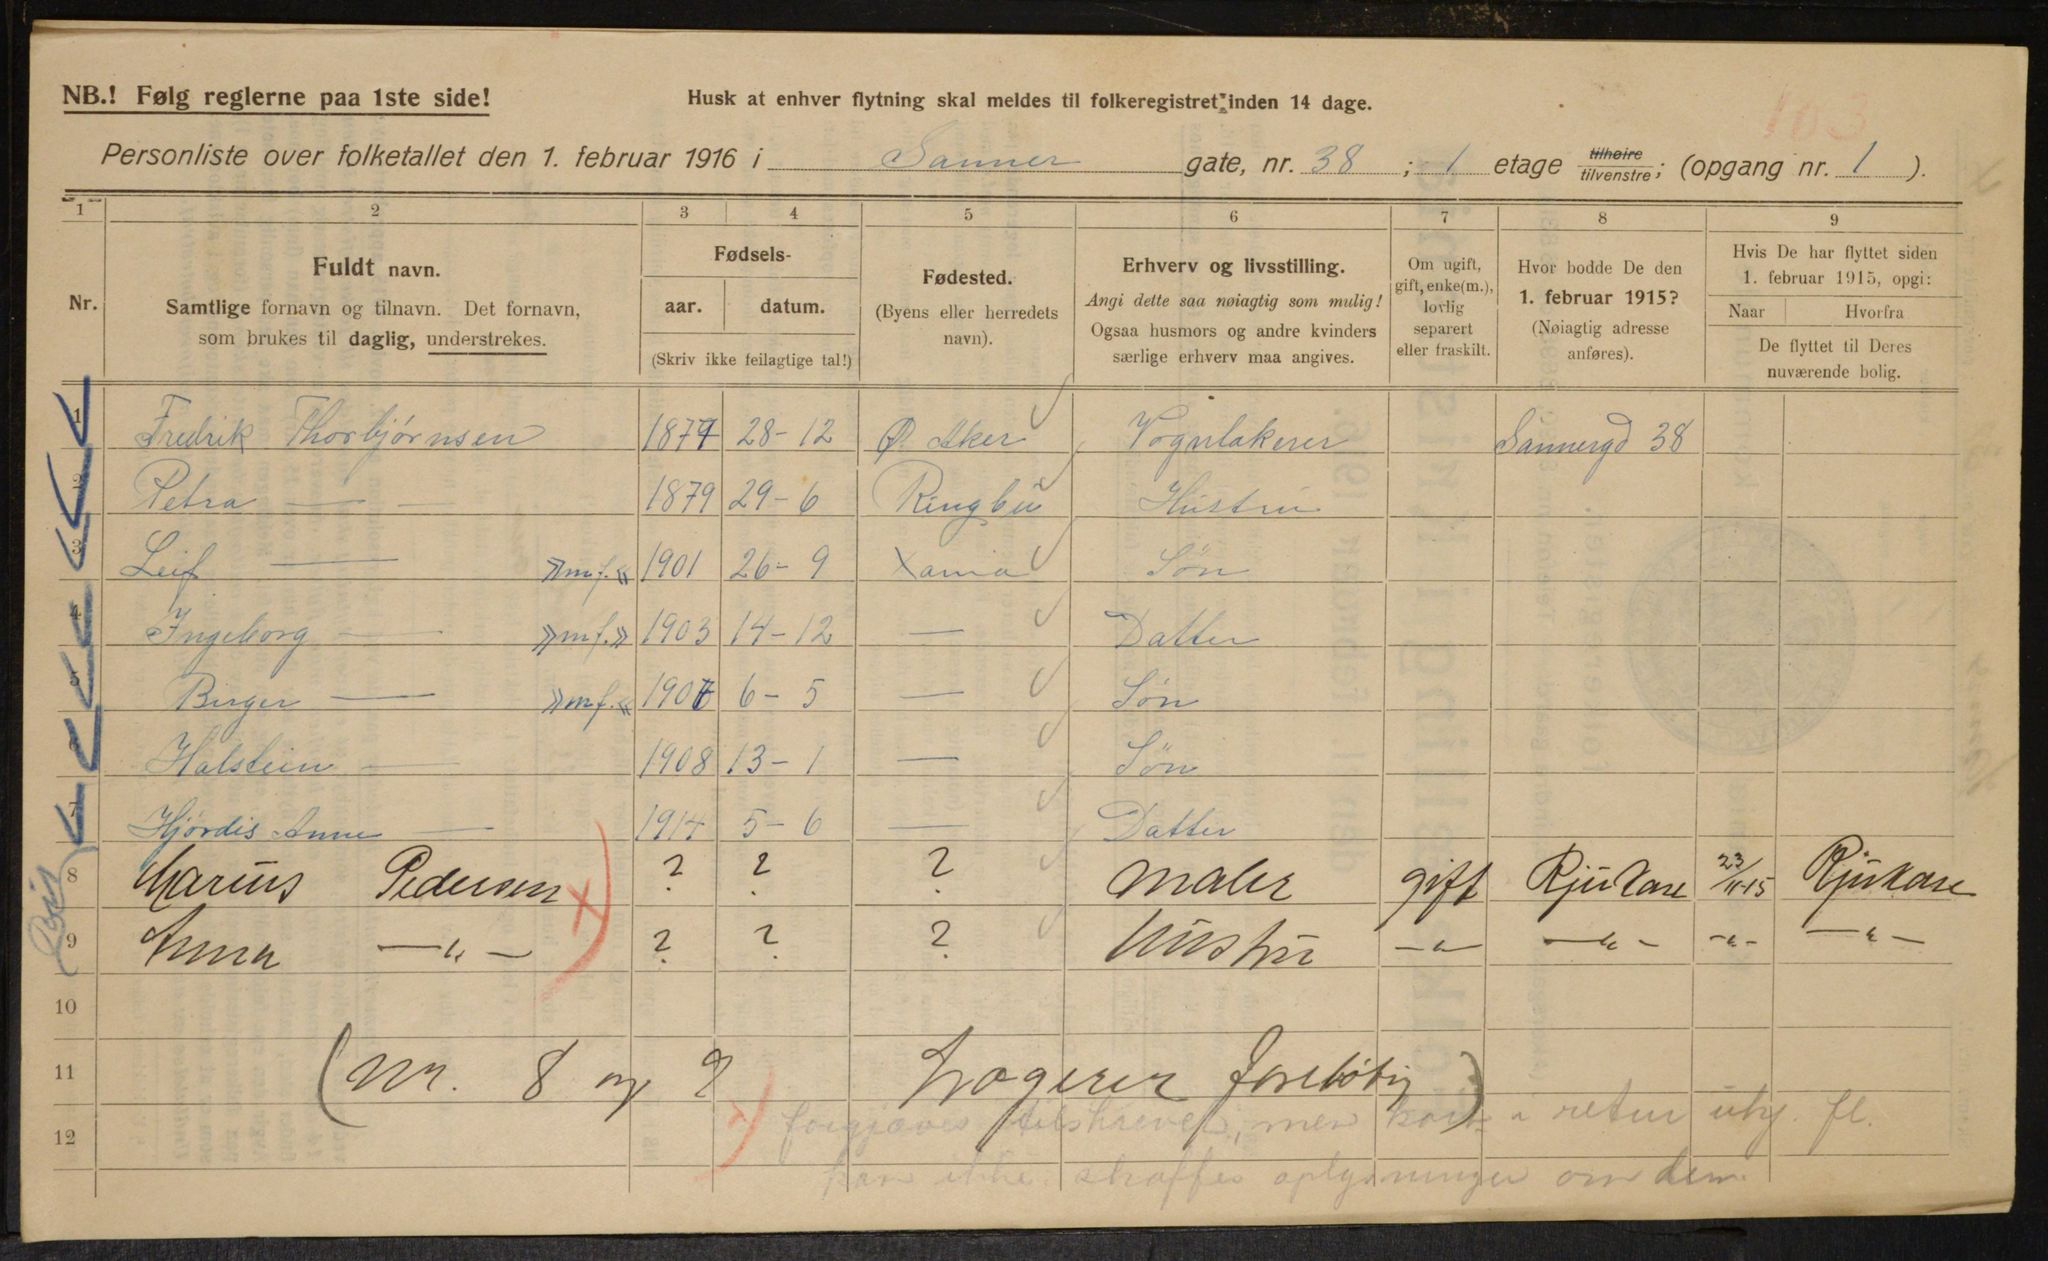 NB.! Følg reglerne paa 1ste side!
Husk at enhver flytning skal meldes til folkeregistret inden 14 dage.
103
Personliste over folketallet den 1. februar 1916 i Sanner gate, nr. 38 ; 1 etage tilhøire tilvenstre; (opgang nr. 1 ).
1 2 3 4 5 6 7 8 9
Nr.
Fuldt navn.
Samtlige fornavn og tilnavn. Det fornavn,
som brukes til daglig, understrekes.
Fødsels-
aar. datum.
(Skriv ikke feilagtige tal!)
Fødested.
(Byens eller herredets
navn).
Erhverv og livsstilling.
Angi dette saa nøiagtig som mulig!
Ogsaa husmors og andre kvinders
særlige erhverv maa angives.
Om ugift,
gift, enke(m.),
lovlig
separert
eller fraskilt.
Hvor bodde De den
1. februar 1915?
(Nøiagtig adresse
anføres).
Hvis De har flyttet siden
1. februar 1915, opgi:
Naar Hvorfra
De flyttet til Deres
nuværende bolig.
1 Fredrik Thorbjørnsen 1877 28-12 Ø. Aker Vognlakerer Sannergd 38
2 Petra — — 1879 29-6 Ringbu Hustru
3 Leif — »m.f.« 1901 26-9 Xania Søn
4 Ingeborg — »m.f.» 1903 14-12 — Datter
5 Birger — »m.f.« 1906 6-5 — Søn
6 Halstein — 1908 13-1 — Søn
7 Hjørdis Anne — 1914 5-6 — Datter
8 Marius Pedersen ? ? ? Maler gift Rjukan 23/11-15 Rjukan
9 Anna —"— ? ? ? Hustru —"— —"— —"— —"—
10
11 (Nr. 8 og 9 Logerer foreløbig)
12 forgjæves tilskrevet, men kort i retur ubj. fl.
kan ikke skaffes oplysninger om dem.